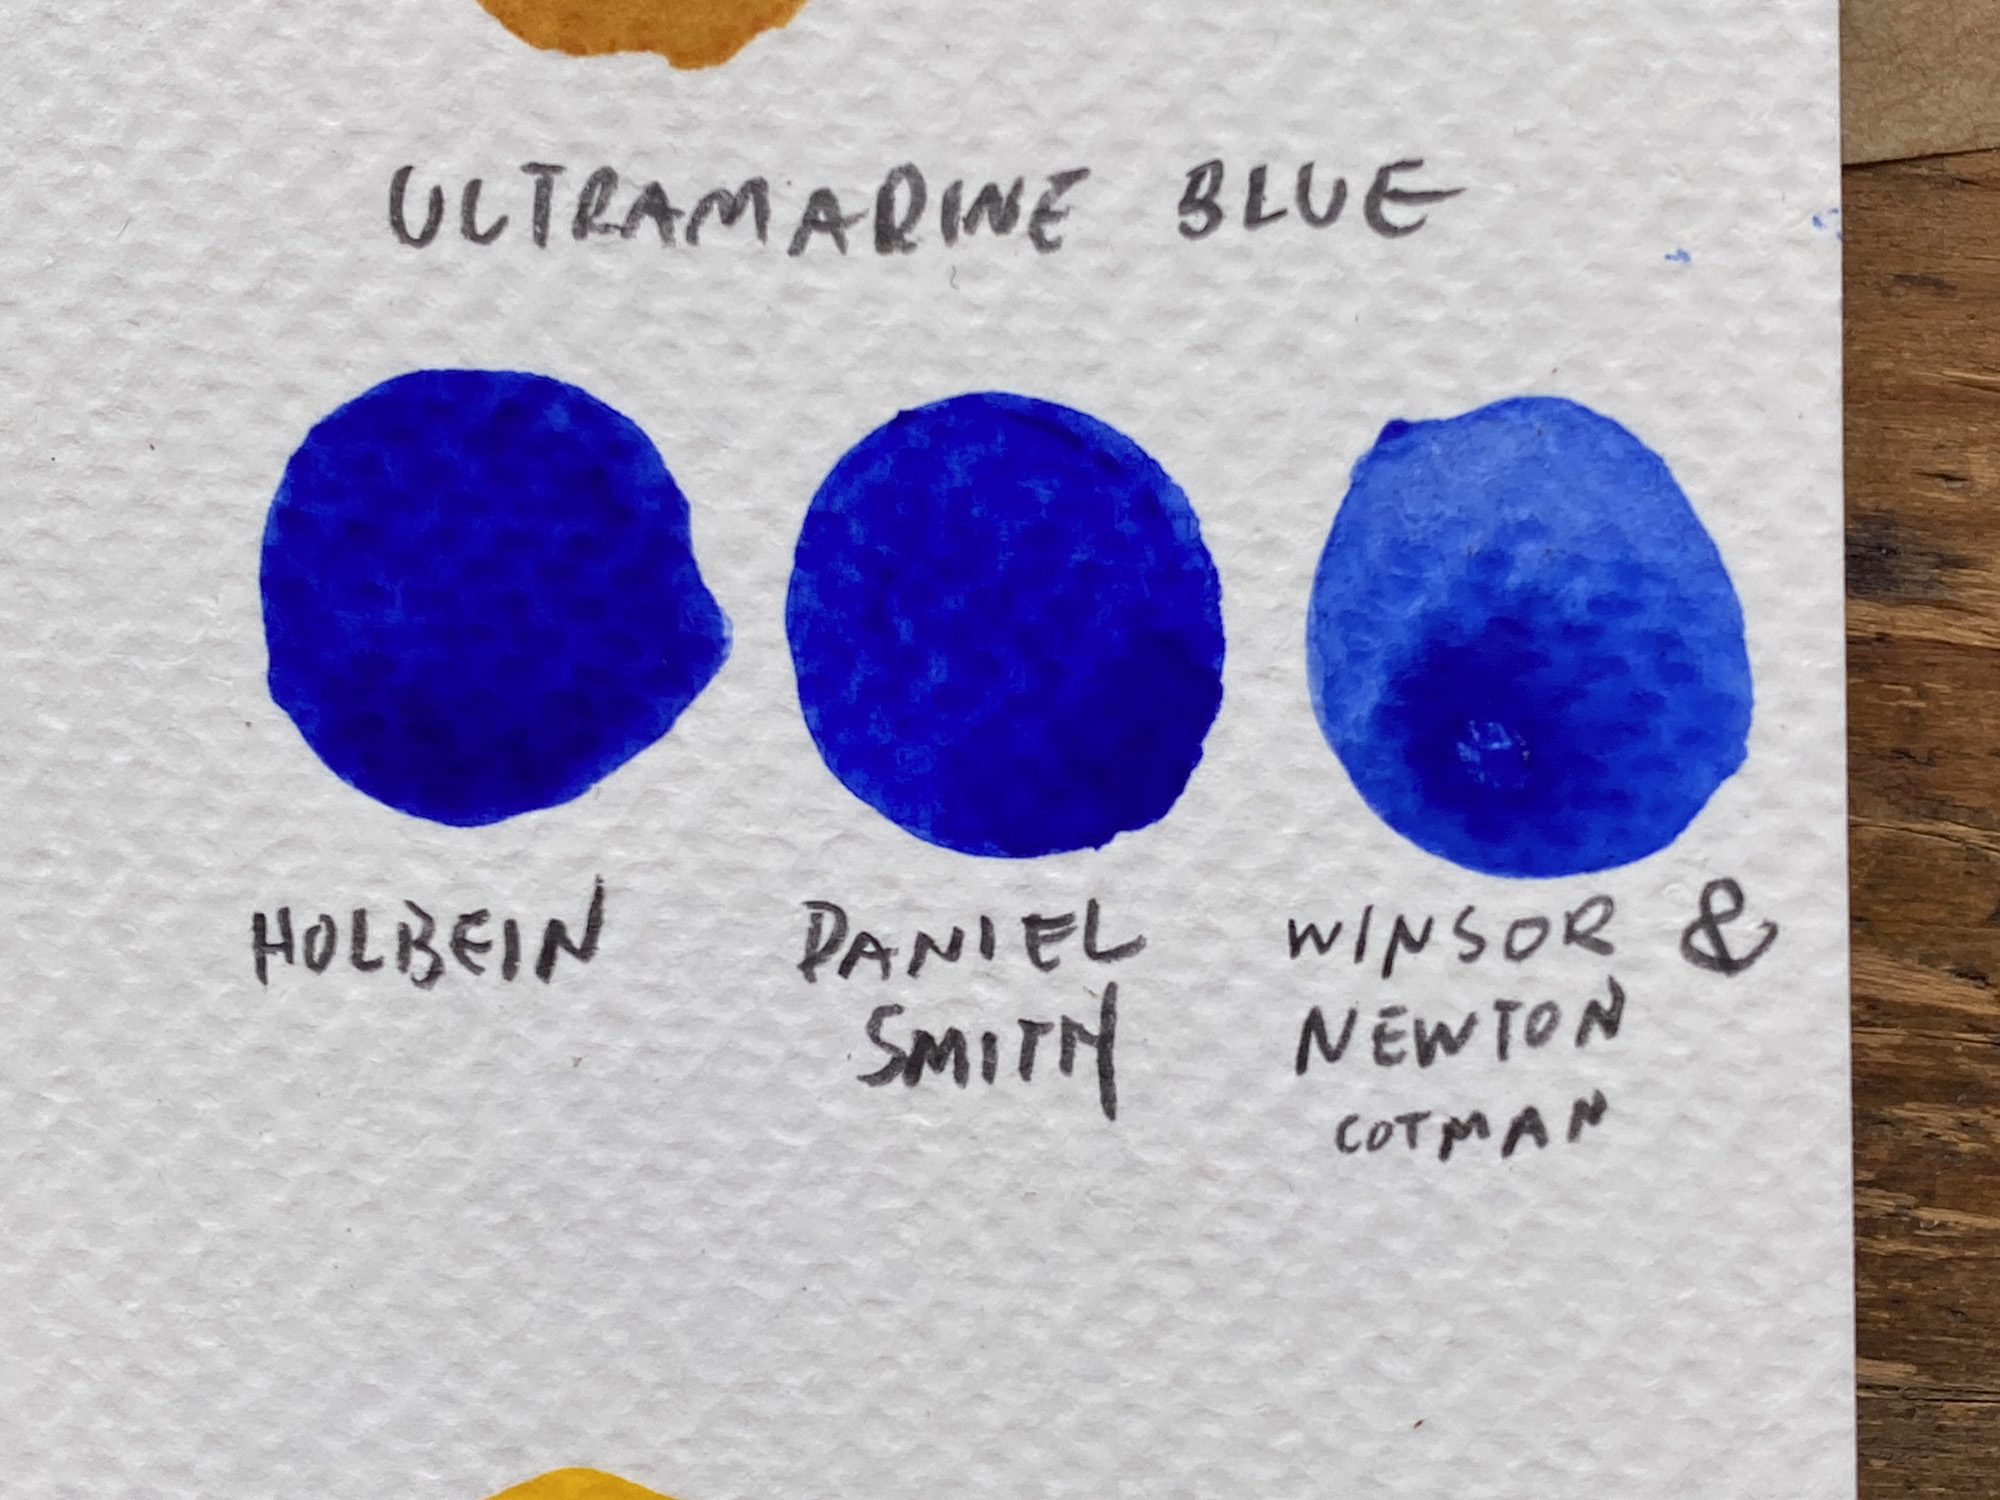 ULTRAMARINE BLUE
HOLBEIN
DANIEL
SMITH
WINSOR &
NEWTON
COTMAN